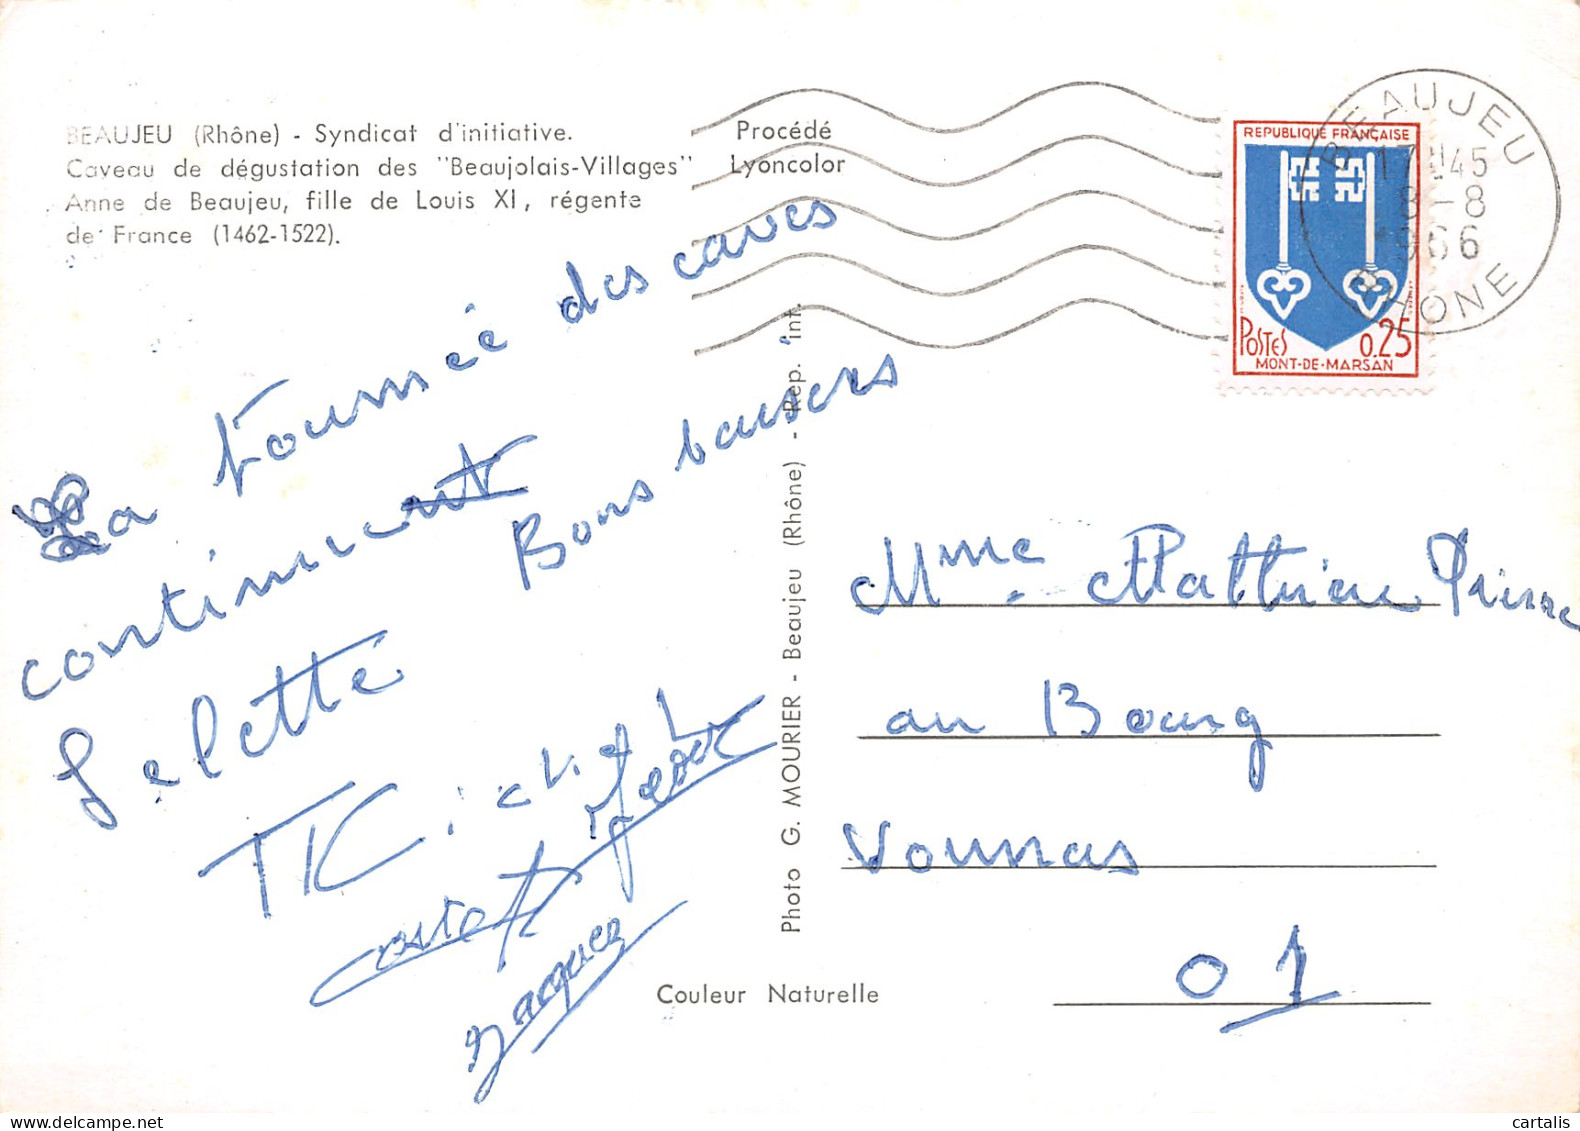 BEAUJEU (Rhône) - Syndicat d'initiative.
Caveau de dégustation des "Beaujolais-Villages"
Anne de Beaujeu, fille de Louis XI, régente
de France (1462-1522).
Procédé
Lyoncolor
REPUBLIQUE FRANÇAISE
POSTES 0.25
MONT-DE-MARSAN
BEAUJEU
17H45
8-8
966
RHONE
La tournée des caves
continuent
Bons baisers
Jacques
Photo G. MOURIER - Beaujeu (Rhône) - Rep. int.
Couleur Naturelle
Mme Mathieu
au Bourg
Vonnas
01
delcampe.net
cartalis